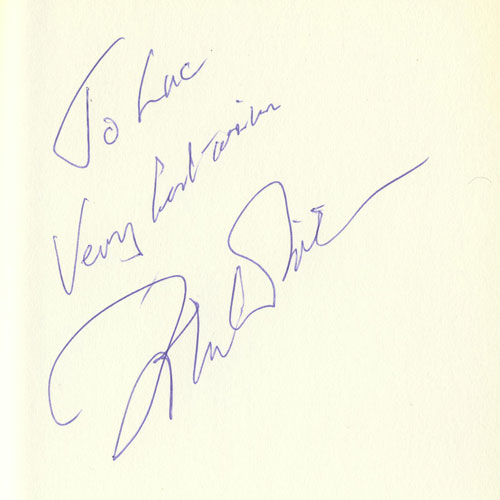 To Luc
Very best wishes